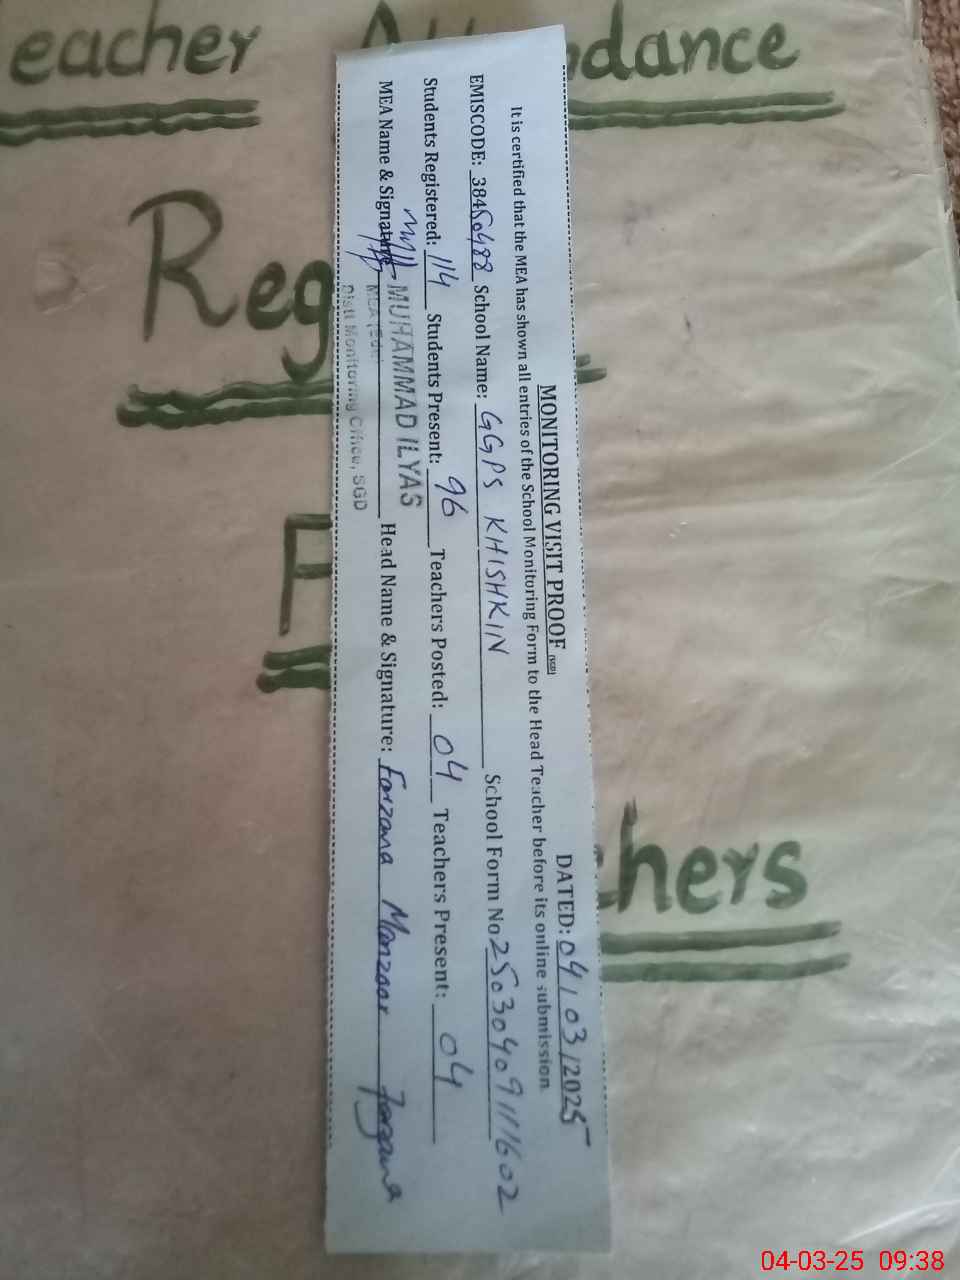 eacher A dance
Reg
F
hers
MONITORING VISIT PROOF (SGD)
DATED: 04/03/2025
It is certified that the MEA has shown all entries of the School Monitoring Form to the Head Teacher before its online submission.
EMISCODE: 38450488 School Name: GGPS KHISHKIN School Form No 25030409111602
Students Registered: 114 Students Present: 96 Teachers Posted: 04 Teachers Present: 04
MEA Name & Signature MUHAMMAD ILYAS Head Name & Signature: Farzana Manzoor Farzana
MEA (Edu)
Distt Monitoring Office, SGD
04-03-25 09:38